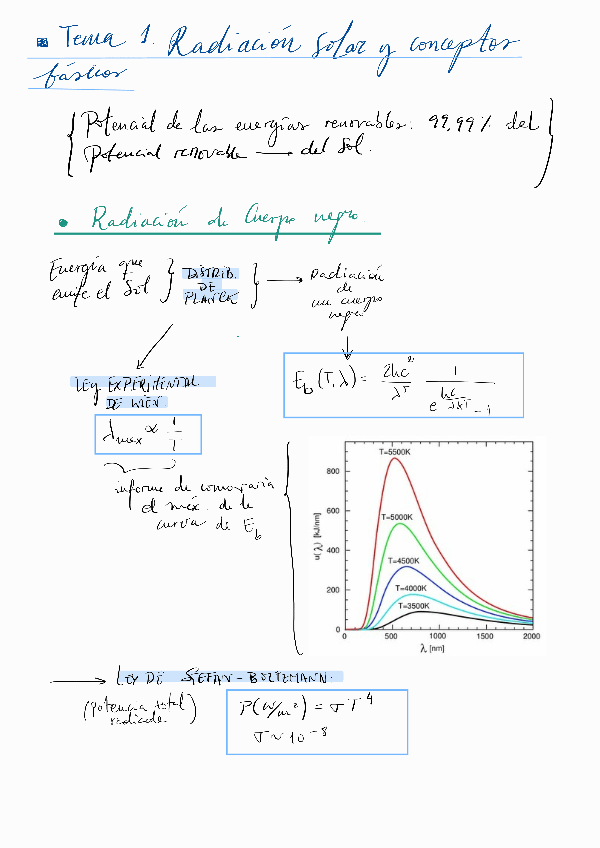 Tema 1. Radiación solar y conceptos
básicos
Potencial de las energías renovables: 99,99 % del
potencial renovable → del Sol.
• Radiación de Cuerpo negro
Energía que
emite el Sol
DISTRIB.
DE
PLANCK
→ Radiación
de
un cuerpo
negro
LEY EXPERIMENTAL
DE WIEN
λmax ∝ 1/T
E_b (T, λ) = 2hc² / λ⁵ · 1 / (e^(hc/λkT) - 1)
informe de
el máx. de la
curva de E_b
T=5500K
T=5000K
T=4500K
T=4000K
T=3500K
u(λ) [kJ/nm]
800
600
400
200
0
0 500 1000 1500 2000
λ [nm]
→ LEY DE STEFAN-BOLTZMANN.
(Potencia total
radiada)
P(W/m²) = σT⁴
σ ~ 10⁻⁸